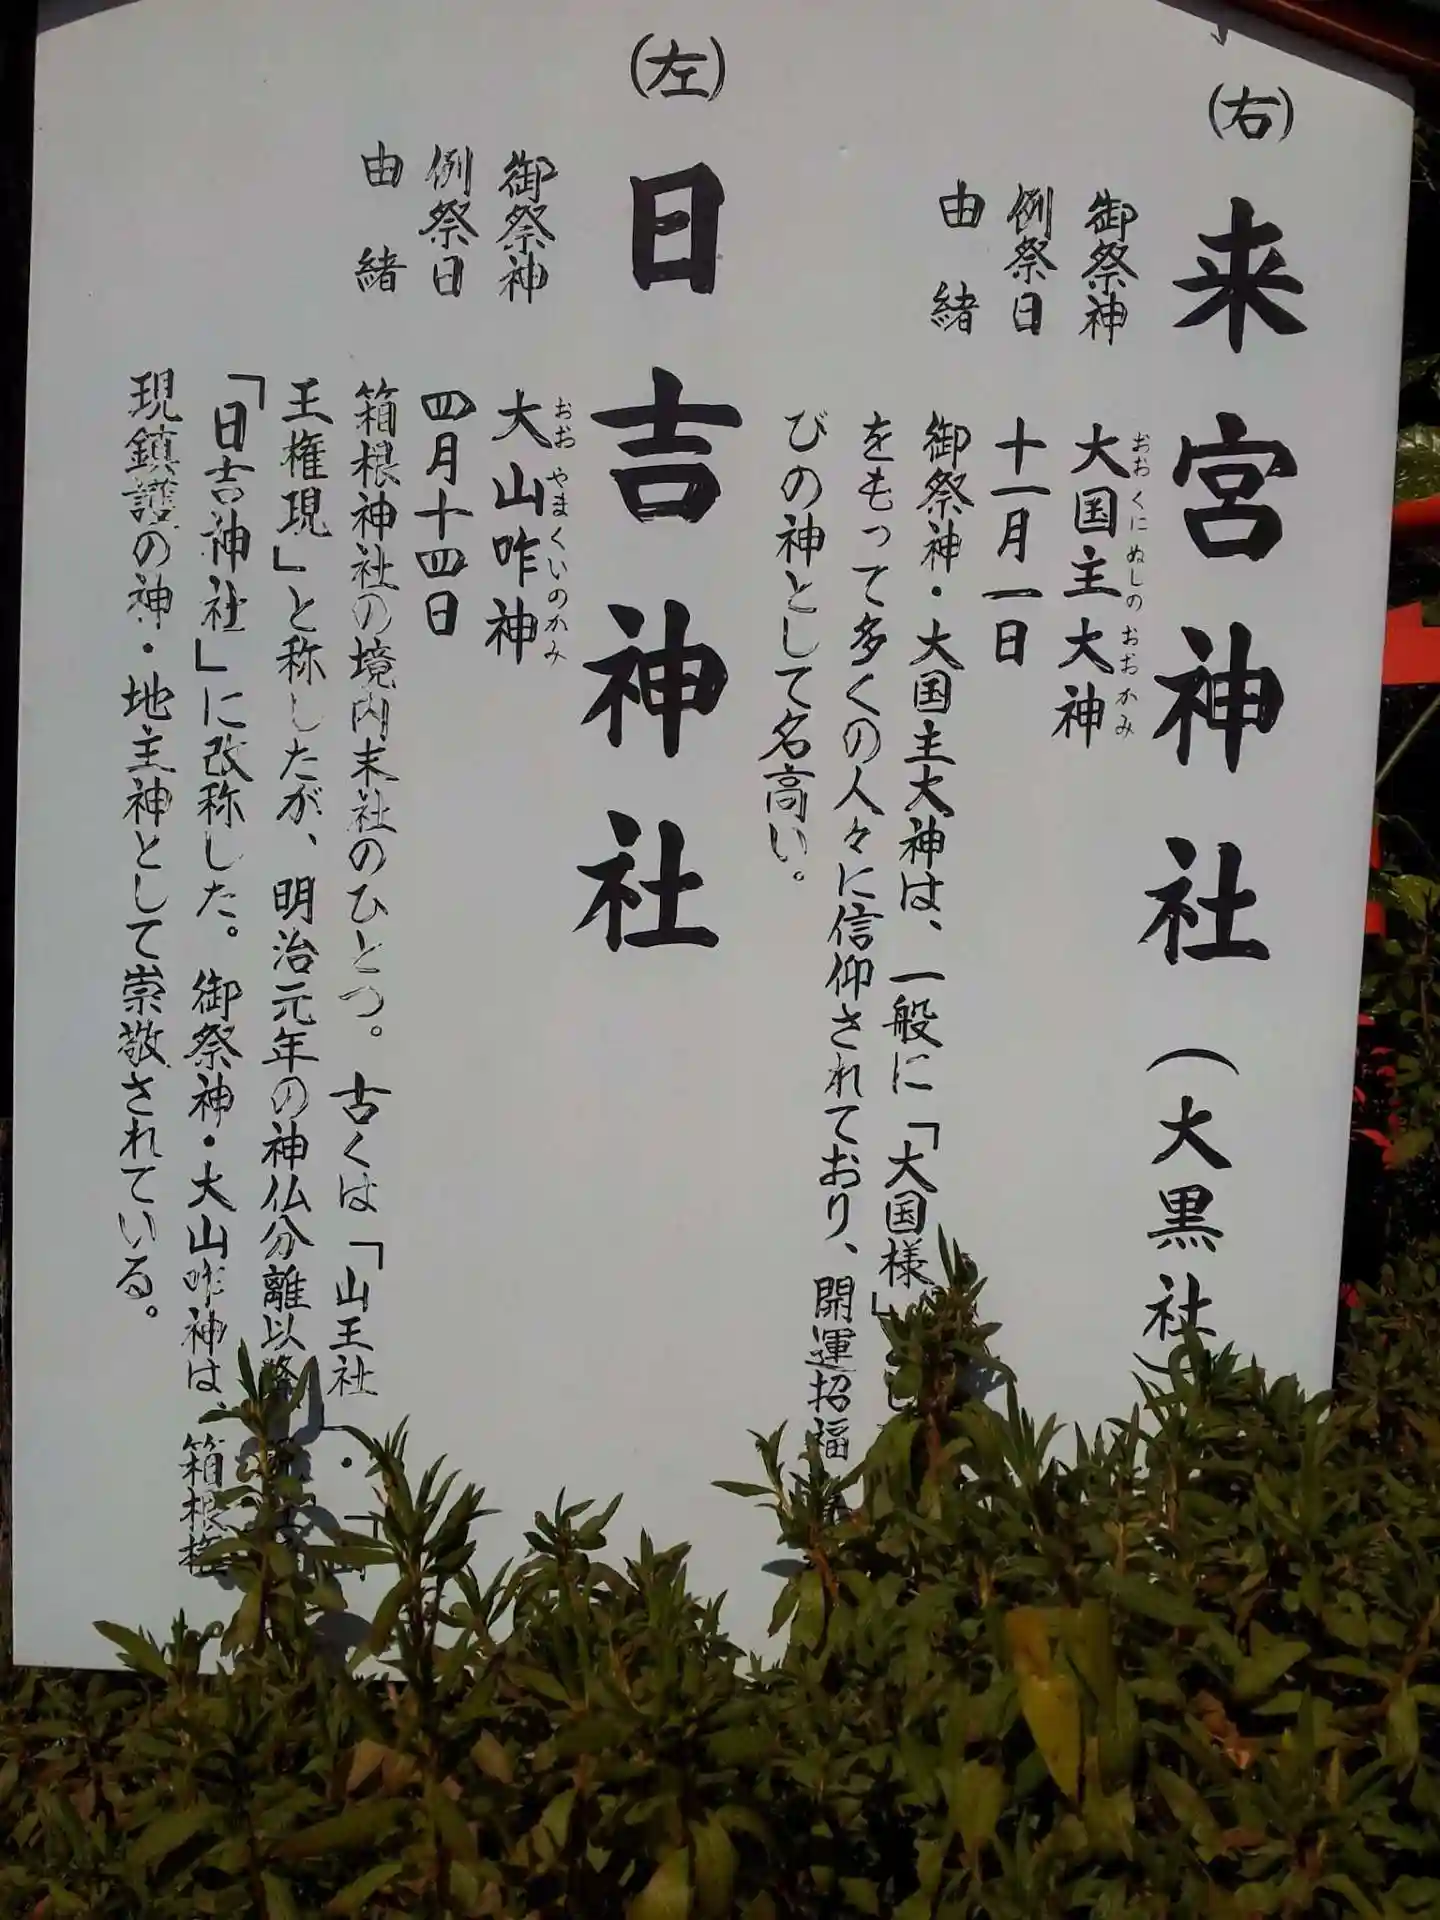 (右)
来宮神社(大黒社)
御祭神 大国主大神
おおくにぬしのおおかみ
例祭日 十一月一日
由緒 御祭神・大国主大神は、一般に「大国様」
をもって多くの人々に信仰されており、開運招福
びの神として名高い。
(左)
日吉神社
御祭神 大山咋神
おおやまくいのかみ
例祭日 四月十四日
由緒 箱根神社の境内末社のひとつ。古くは「山王社」・「
王権現」と称したが、明治元年の神仏分離以降
「日吉神社」に改称した。御祭神・大山咋神は、箱根権
現鎮護の神・地主神として崇敬されている。